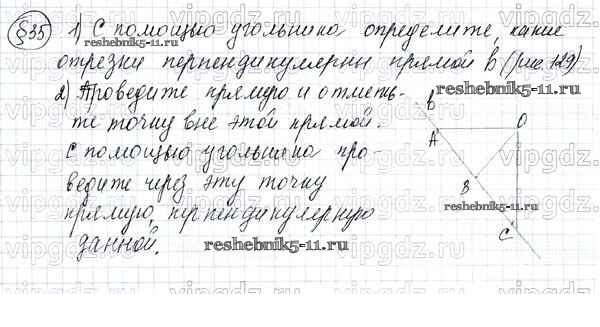 §35 1) С помощью угольника определите, какие
отрезки перпендикулярны прямой b (рис. 129)
2) Проведите прямую и отметь-
те точку вне этой прямой.
С помощью угольника про-
ведите через эту точку
прямую, перпендикулярную
данной.
b
A
O
B
C
reshebnik5-11.ru
reshebnik5-11.ru
reshebnik5-11.ru
reshebnik5-11.ru
vipgdz.ru
vipgdz.ru
vipgdz.ru
vipgdz.ru